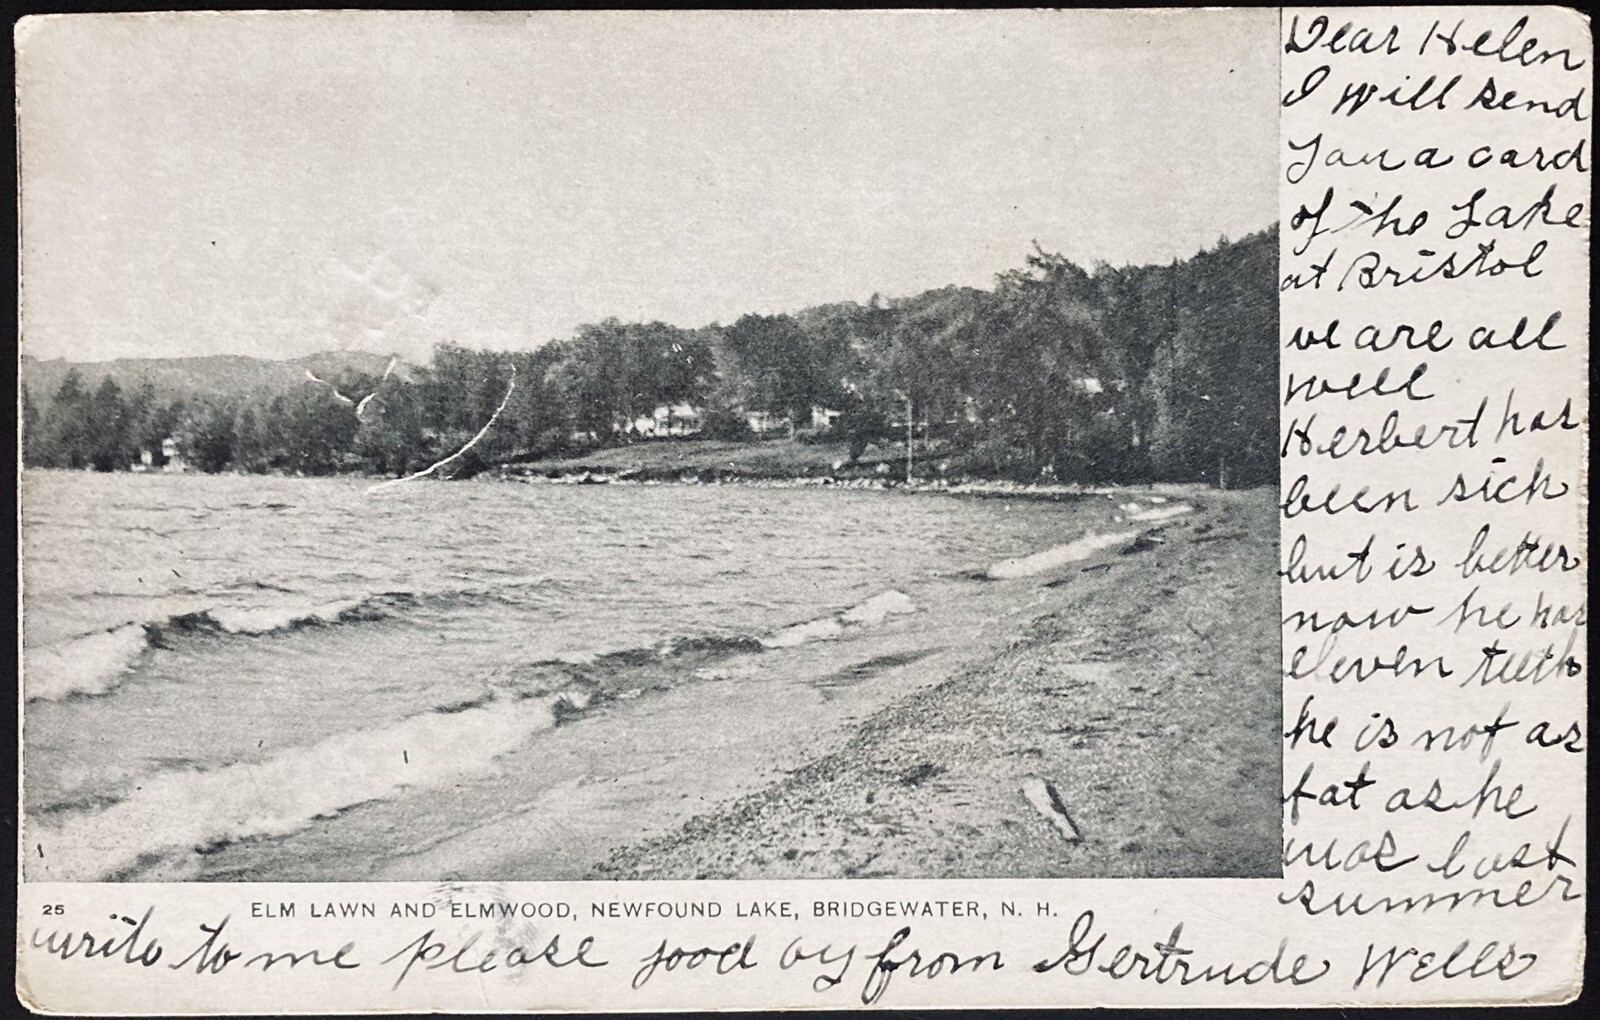 Dear Helen
I will send
you a card
of the Lake
at Bristol
we are all
well
Herbert has
been sick
but is better
now he has
eleven teeth
he is not as
fat as he
was last
summer
25
ELM LAWN AND ELMWOOD, NEWFOUND LAKE, BRIDGEWATER, N. H.
write to me please good by from Gertrude Wells